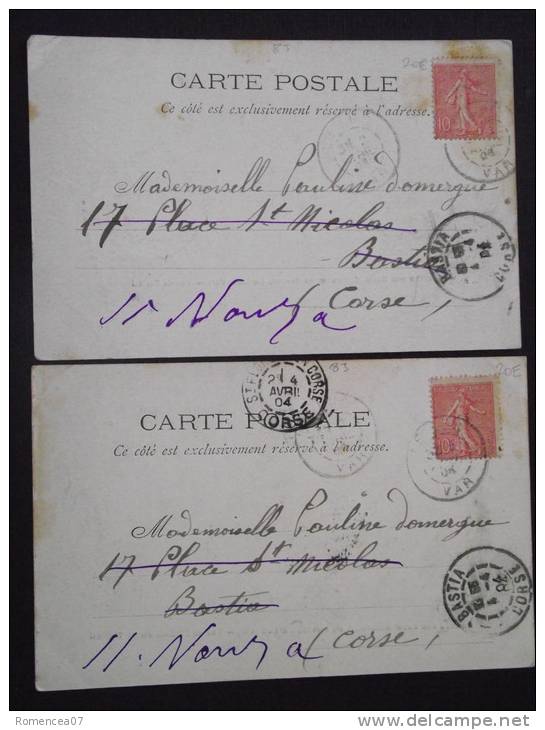 83
20E
CARTE POSTALE
Ce côté est exclusivement réservé à l'adresse.
10
VAR
04
Mademoiselle Pauline Domergue
17 Place St Nicolas
Bastia
BASTIA
CORSE
(Corse)
83
20E
CORSE
2E 4
AVRIL
04
CORSE
CARTE POSTALE
Ce côté est exclusivement réservé à l'adresse.
10
VAR
Mademoiselle Pauline Domergue
17 Place St Nicolas
Bastia
BASTIA
CORSE
04
(Corse)
Romencea07
www.delcampe.net